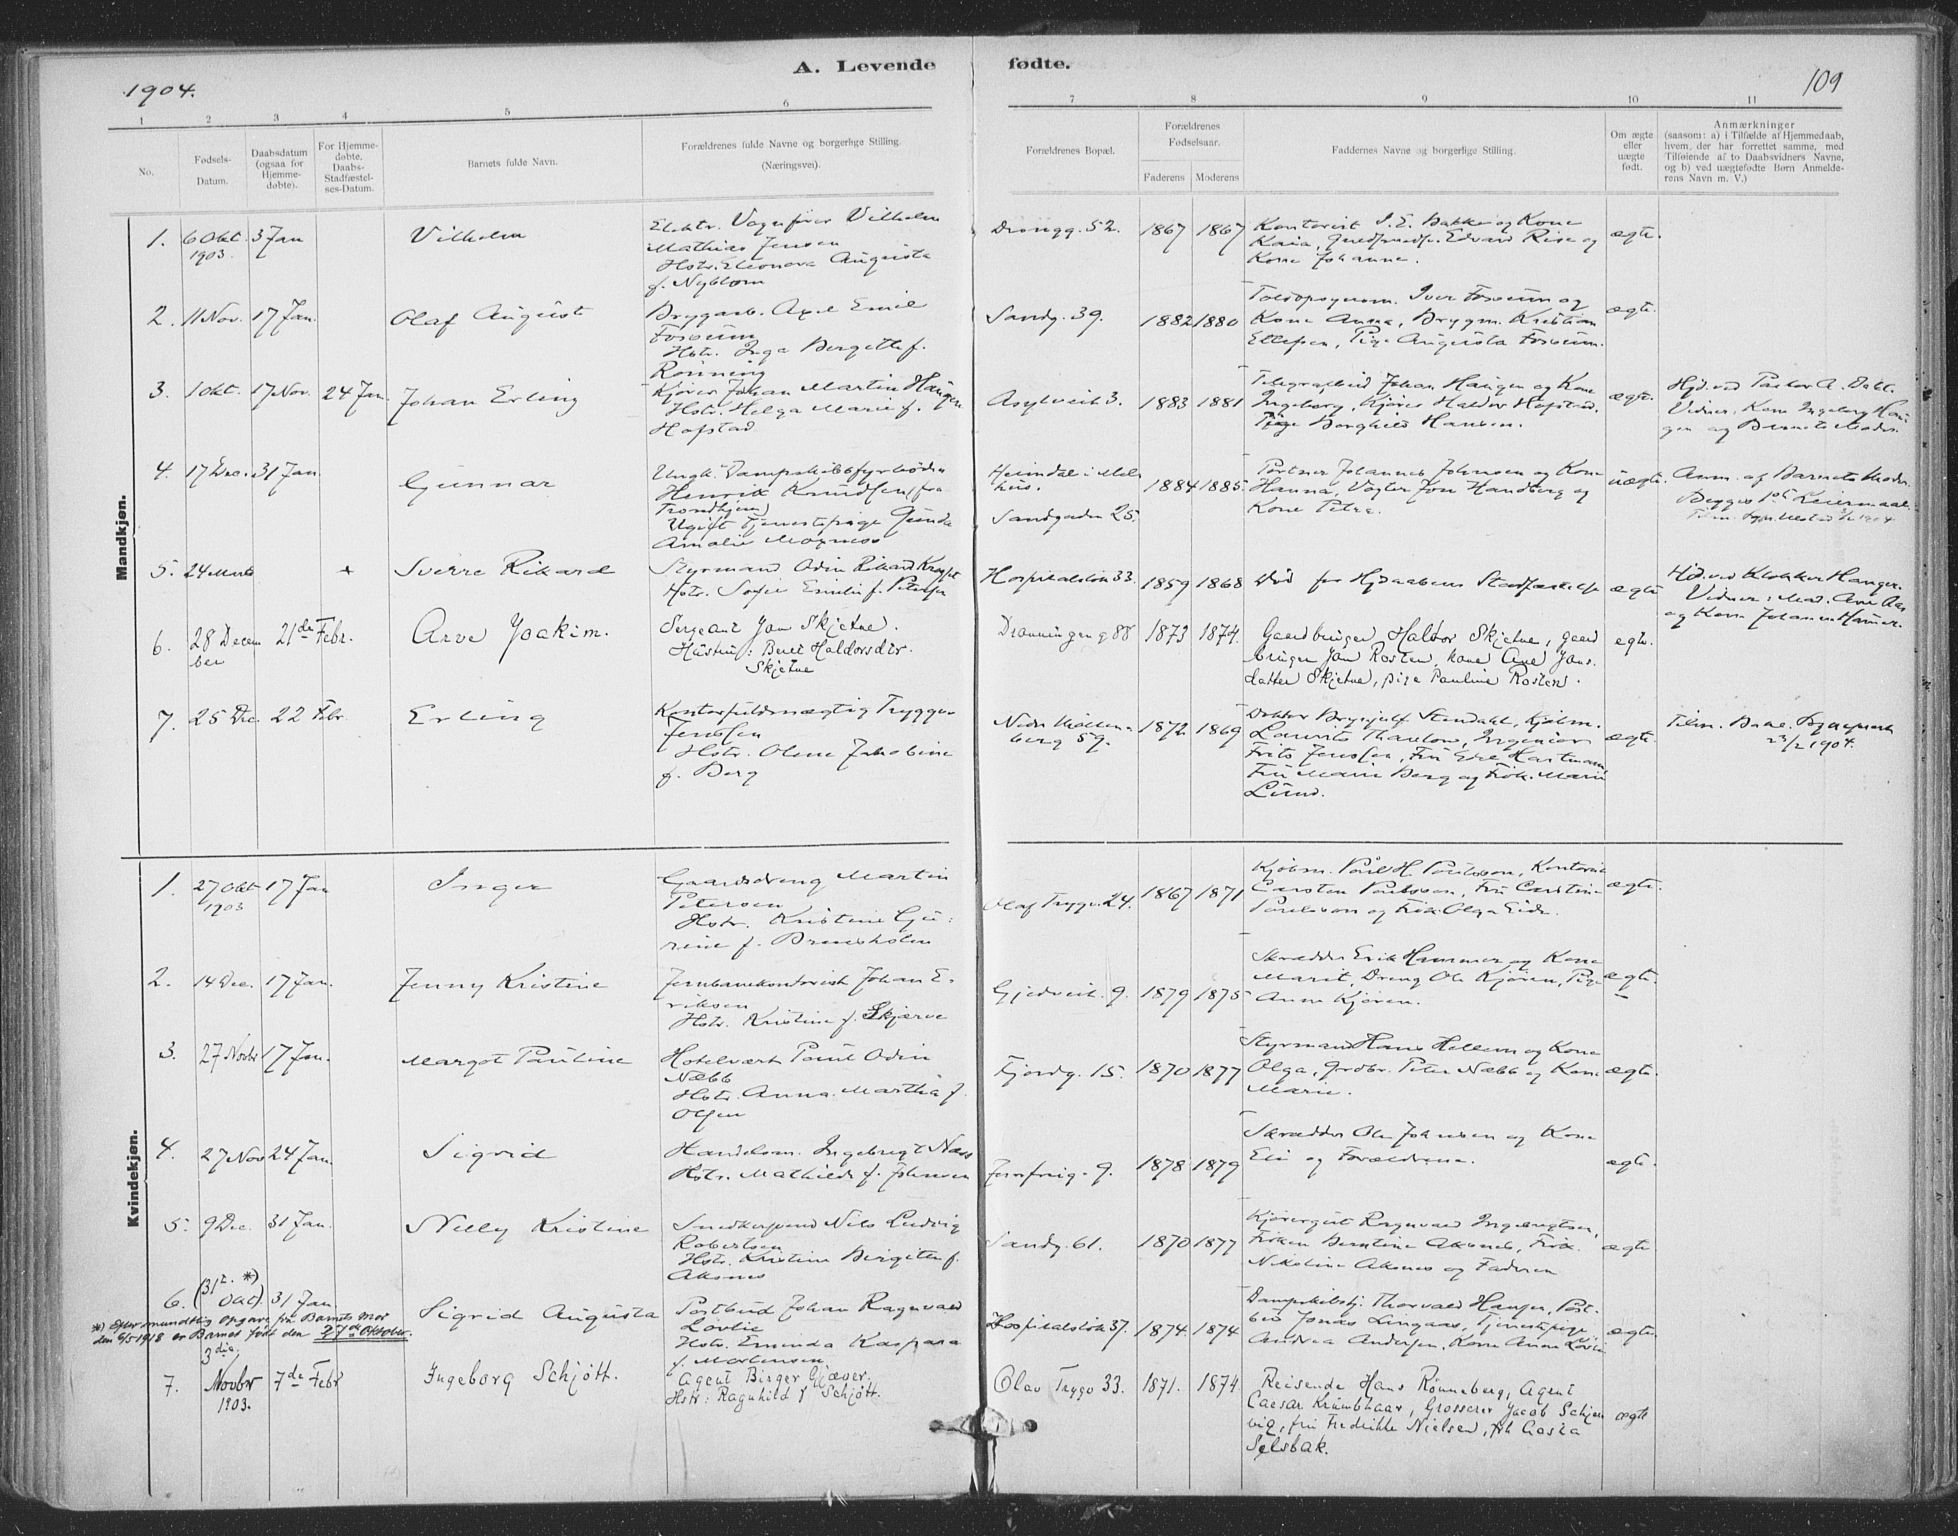 1904.
A. Levende fødte.
109
1 2 3 4 5 6 7 8 9 10 11
No.
Fødsels-Datum.
Daabsdatum (ogsaa for Hjemmedøbte).
For Hjemmedøbte, Daabs-Stadfæstelses-Datum.
Barnets fulde Navn.
Forældrenes fulde Navne og borgerlige Stilling.
(Næringsvei).
Forældrenes Bopæl.
Forældrenes Fødselsaar.
Faderens Moderens
Faddernes Navne og borgerlige Stilling.
Om ægte eller uægte født.
Anmærkninger
(saasom: a) i Tilfælde af Hjemmedaab, hvem, der har forrettet samme, med Tilføiende af to Daabsvidners Navne, og b) ved uægtefødte Børn Anmelderens Navn m. V.)
Mandkjøn.
1. 6 Okt. 1903. 3 Jan Vilhelm
Elektr. Vognfører Vilhelm
Mathias Jensen
Hstr. Eleonora Augusta
f. Nyblom
Dronngg. 52. 1867 1867
Kontorist J. E. Bakke og Kone
Kaia, Guldsmedsv. Edvard Rise og
Kone Johanne.
ægte.
2. 11 Nov. 17 Jan. Olaf August
Bryggarb. Axel Emil
Fosseum
Hstr. Inga Bergette f.
Rønning
Sandg. 39. 1882 1880
Iver Fosseum og
Kone Anna, Brygm. Kristian
Ellefsen, Pige Augusta Fosseum.
ægte.
3. 1 Okt. 17 Nov. 24 Jan. Johan Erling
Kjører Johan Martin Haugen
Hstr. Helga Marie f.
Hofstad
Asylveit 3. 1883 1881
Telegrafbud Johan Haugen og Kone
Ingeborg, Kjører Haldor Hofstad,
Pige Borghild Hansen.
ægte.
Hjd. ved Pastor A. Dahl.
Vidner, Kone Ingeborg Haugen
og Barnets Moder.
4. 17 Dec. 31 Jan. Gunnar
Ungk. Dampskibsfyrbøder
Henrik Knudsen (fra
Trondhjem)
Ugift Tjenestepige Gunda
Amalie Moxness
Heimdal i Melhus.
Sandgaden 25. 1884 1885.
Portner Johannes Johnsen og Kone
Hanna, Vogter Jon Handberg og
Kone Petra.
uægte.
Anm. af Barnets Moder.
Begges 1ste Leiermaal.
5. 24 Marts + Sverre Rikard
Styrmand Odin Rikard
Hstr. Sofie Emilie f. Petersen
Hospitalsløk 33. 1859 1868
Død før Hjdaabens Stadfæstelse
ægte
Hjd. ved Klokker Hanger.
Vidner: Mad. Aas
og Kone Johanna Hammer.
6. 28 December 21de Febr. Arve Joakim.
Sergeant Jon Skjetne.
Hustru: Beret Haldorsdtr.
Skjetne
Dronningeng 88 1873 1874.
Gaardbruger Haldor Skjetne, gaardbruger
Jon Rosten, kone Ane Jonsdatter
Skjetne, pige Pauline Rosten.
egte.
7. 25 Dec. 22 Febr. Erling
Kontorfuldmægtig Trygge
Jenssen
Hstr. Olene Jakobine
f. Berg
Nedr Møllenberg 59. 1872 1869
Doktor Brynjulf Stendahl, Kjøbm.
Laurits Thaulow, Ingeniør
Frits Jenssen, Fru Hartmann,
Fru Marie Berg og Frøk. Marie
Lund.
ægte.
23/2 1904.
Kvindekjøn.
1. 27 Okt 1903 17 Jan Inger
Gaardsdreng Martin
Petersen
Hstr. Kristine
f.
Olaf Trygv. 24. 1867 1871
Kjøbm. Poul H. Poulsson, Kontorist
Carsten Poulsson, Fru Carstine
Poulsson og Frøk. Olga Eide.
ægte.
2. 14 Dec. 17 Jan. Jenny Kristine
Jernbanekontorist Johan Eriksen
Hstr. Kristine f. Skjærve
Gjedveit. 9. 1879 1875
Skrædder Erik Hammer og Kone
Marit, Dreng Ole Kjøren, Pige
Anne Kjøren.
ægte.
3. 27 Novbr 17 Jan. Margot Pauline
Hotelvært Paul Odin
Næbb
Hstr. Anna Martha f.
Olsen
Fjordg. 15. 1870 1877
Styrmand Hans Hellem og Kone
Olga, Grdbr. Peter Næbb og Kone
Marie.
ægte.
4. 27 Nov 24 Jan. Sigrid
Handelsm. Ingebrigt Næss
Hstr. Mathilde f. Johnsen
9. 1878 1879
Skrædder Ole Johnsen og Kone
Eli og Forældrene.
ægte.
5. 9 Dec. 31 Jan. Nelly Kristine
Snedkersvend Nils Ludvig
Robertsen
Hstr. Kristine Birgitte f.
Aksnes
Sandg. 61. 1870 1877
Kjøregut Ragnvald Ingebrigtsen,
Frøken Berntine Aksnes, Frøk.
Nikoline Aksnes og Faderen
ægte
6. (31te *) Okt). 31 Jan Sigrid Augusta
*) Efter mundtlig opgave fra Barnets Mor
den 6/5 1918 er Barnet født den 27de Oktober.
Postbud Johan Ragnvald
Løvlie
Hstr. Emenda Kaspara
f. Mortensen
Hospitalsløk 37. 1874. 1874
Dampskibstj. Thorvald Hansen, Postbud
Jonas Lingaas, Tjenestepige
Andrea Andersen, Kone Anna Løvlie
ægte.
7. 3die Novbr 1903. 7de Febr Ingeborg Schjøtt.
Agent Birger Gjæver.
Hstr: Ragnhild f Schjøtt.
Olav Trygv 33. 1871. 1874
Reisende Hans Rønneberg, Agent
Caesar Krumbhaar, Grosserer Jacob Schjervig,
fru Fredrikke Nielsen, frk Gosta
Selsbak.
ægte